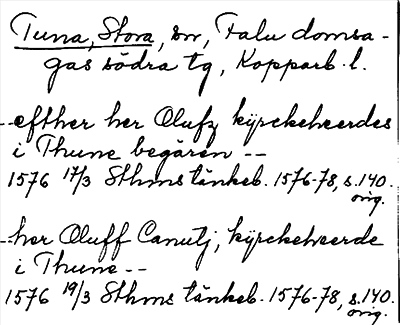 Tuna, Stora, sn, Falu domsa-
gas södra tg, Kopparb. l.
--efther her Olufz kyrckeheerdes
i Thune begären --
1576 17/3 Sthms tänkeb. 1576-78, s. 140.
orig.
--her Oluff Canutj, kyrckeheerde
i Thune --
1576 19/3 Sthms tänkeb. 1576-78, s. 140.
orig.